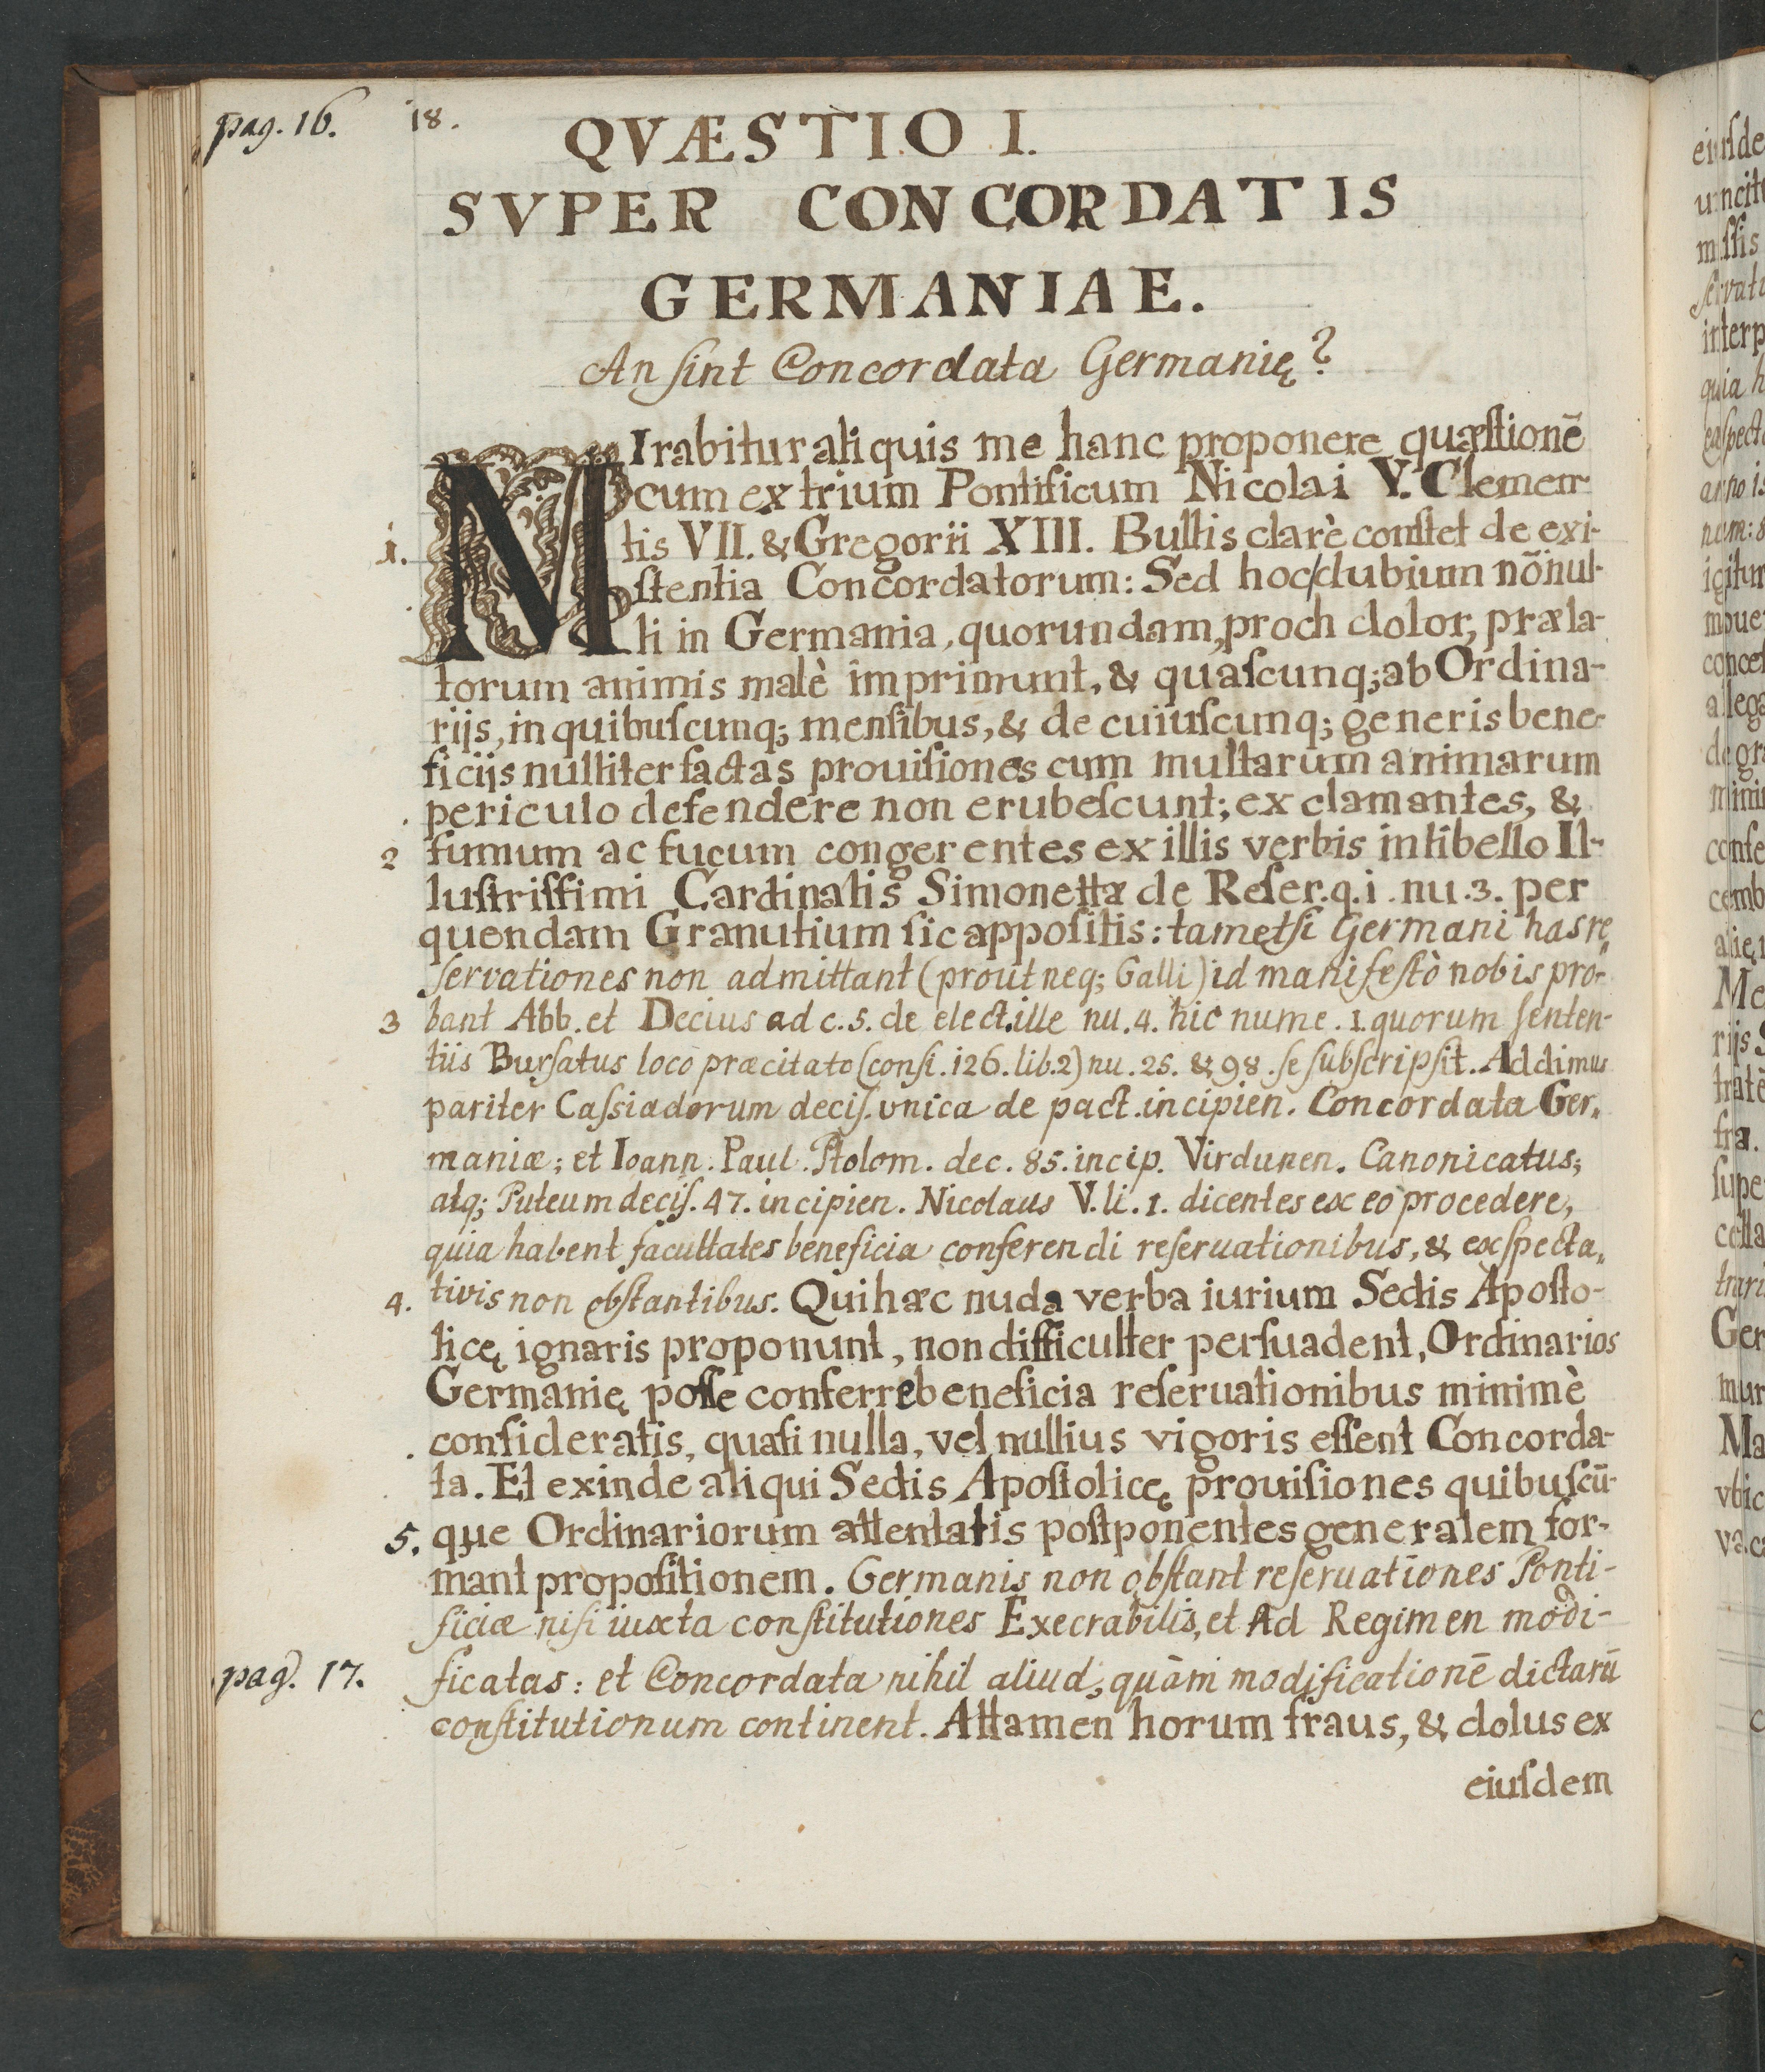 pag. 16.
18.
QVÆSTIO I.
SVPER CONCORDATIS
GERMANIAE.
An ſint Concordata Germanię?
MIrabitur aliquis me hanc proponere quæſtionē
cum ex trium Pontificum Nicolai V. Clemen-
1. tis VII. & Gregorii XIII. Bullis clarè conſtet de exi-
ſtentia Concordatorum: Sed hoc dubium nōnul-
li in Germania, quorundam, proch dolor, præla-
torum animis malè imprimunt, & quaſcunq; ab Ordina-
rijs, in quibuſcunq; menſibus, & de cuiuſcunq; generis bene-
ficijs nulliter factas prouiſiones cum multarum animarum
periculo defendere non erubeſcunt; exclamantes, &
2 fumum ac fucum congerentes ex illis verbis in libello Il-
luſtriſſimi Cardinalis Simonettæ de Reſer. q. i. nu. 3. per
quendam Granutium ſic appoſitis: tametſi Germani has re„
ſervationes non admittant (prout neq; Galli) id manifeſtò nobis pro-
3 bant Abb. et Decius ad c. 5. de elect. ille nu. 4. hic nume. 1. quorum ſenten-
tiis Burſatus loco præcitato (conſi. 126. lib. 2) nu. 25. & 98. ſe ſubſcripſit. Addimus
pariter Caſsiadorum deciſ. vnica de pact. incipien. Concordata Ger„
maniæ; et Ioann. Paul. Ptolom. dec. 85. incip. Virdunen. Canonicatus;
atq; Puteum deciſ. 47. incipien. Nicolaus V. li. 1. dicentes ex eo procedere,
quia habent facultates beneficia conferendi reſeruationibus, & exſpecta„
4. tivis non obſtantibus. Qui hæc nuda verba iurium Sedis Apoſto-
licę ignaris proponunt, non difficulter perſuadent, Ordinarios
Germanię poſſe conferre beneficia reſeruationibus minimè
conſideratis, quaſi nulla, vel nullius vigoris eſſent Concorda-
ta. Et exinde aliqui Sedis Apoſtolicę prouiſiones quibuſcū-
5. que Ordinariorum attentatis poſtponentes generalem for-
mant propoſitionem. Germanis non obſtant reſeruationes Ponti-
ficiæ niſi iuxta conſtitutiones Execrabilis, et Ad Regimen modi-
pag. 17.
ficatas: et Concordata nihil aliud, quàm modificationē dictarū
conſtitutionum continent. Attamen horum fraus, & dolus ex
eiuſdem